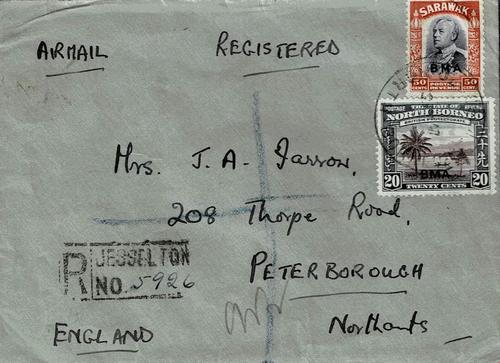 AIRMAIL
REGISTERED
SARAWAK
BMA
50 CENT.
POSTAGE
REVENUE
50 CENT.
POSTAGE THE STATE OF REVENUE
NORTH BORNEO
BRITISH PROTECTORATE
BMA
20
TWENTY CENTS
20
Mrs. J. A. Farrow,
208 Thorpe Road,
PETERBOROUGH
Northants
R
JESSELTON
NO. 5926
ENGLAND